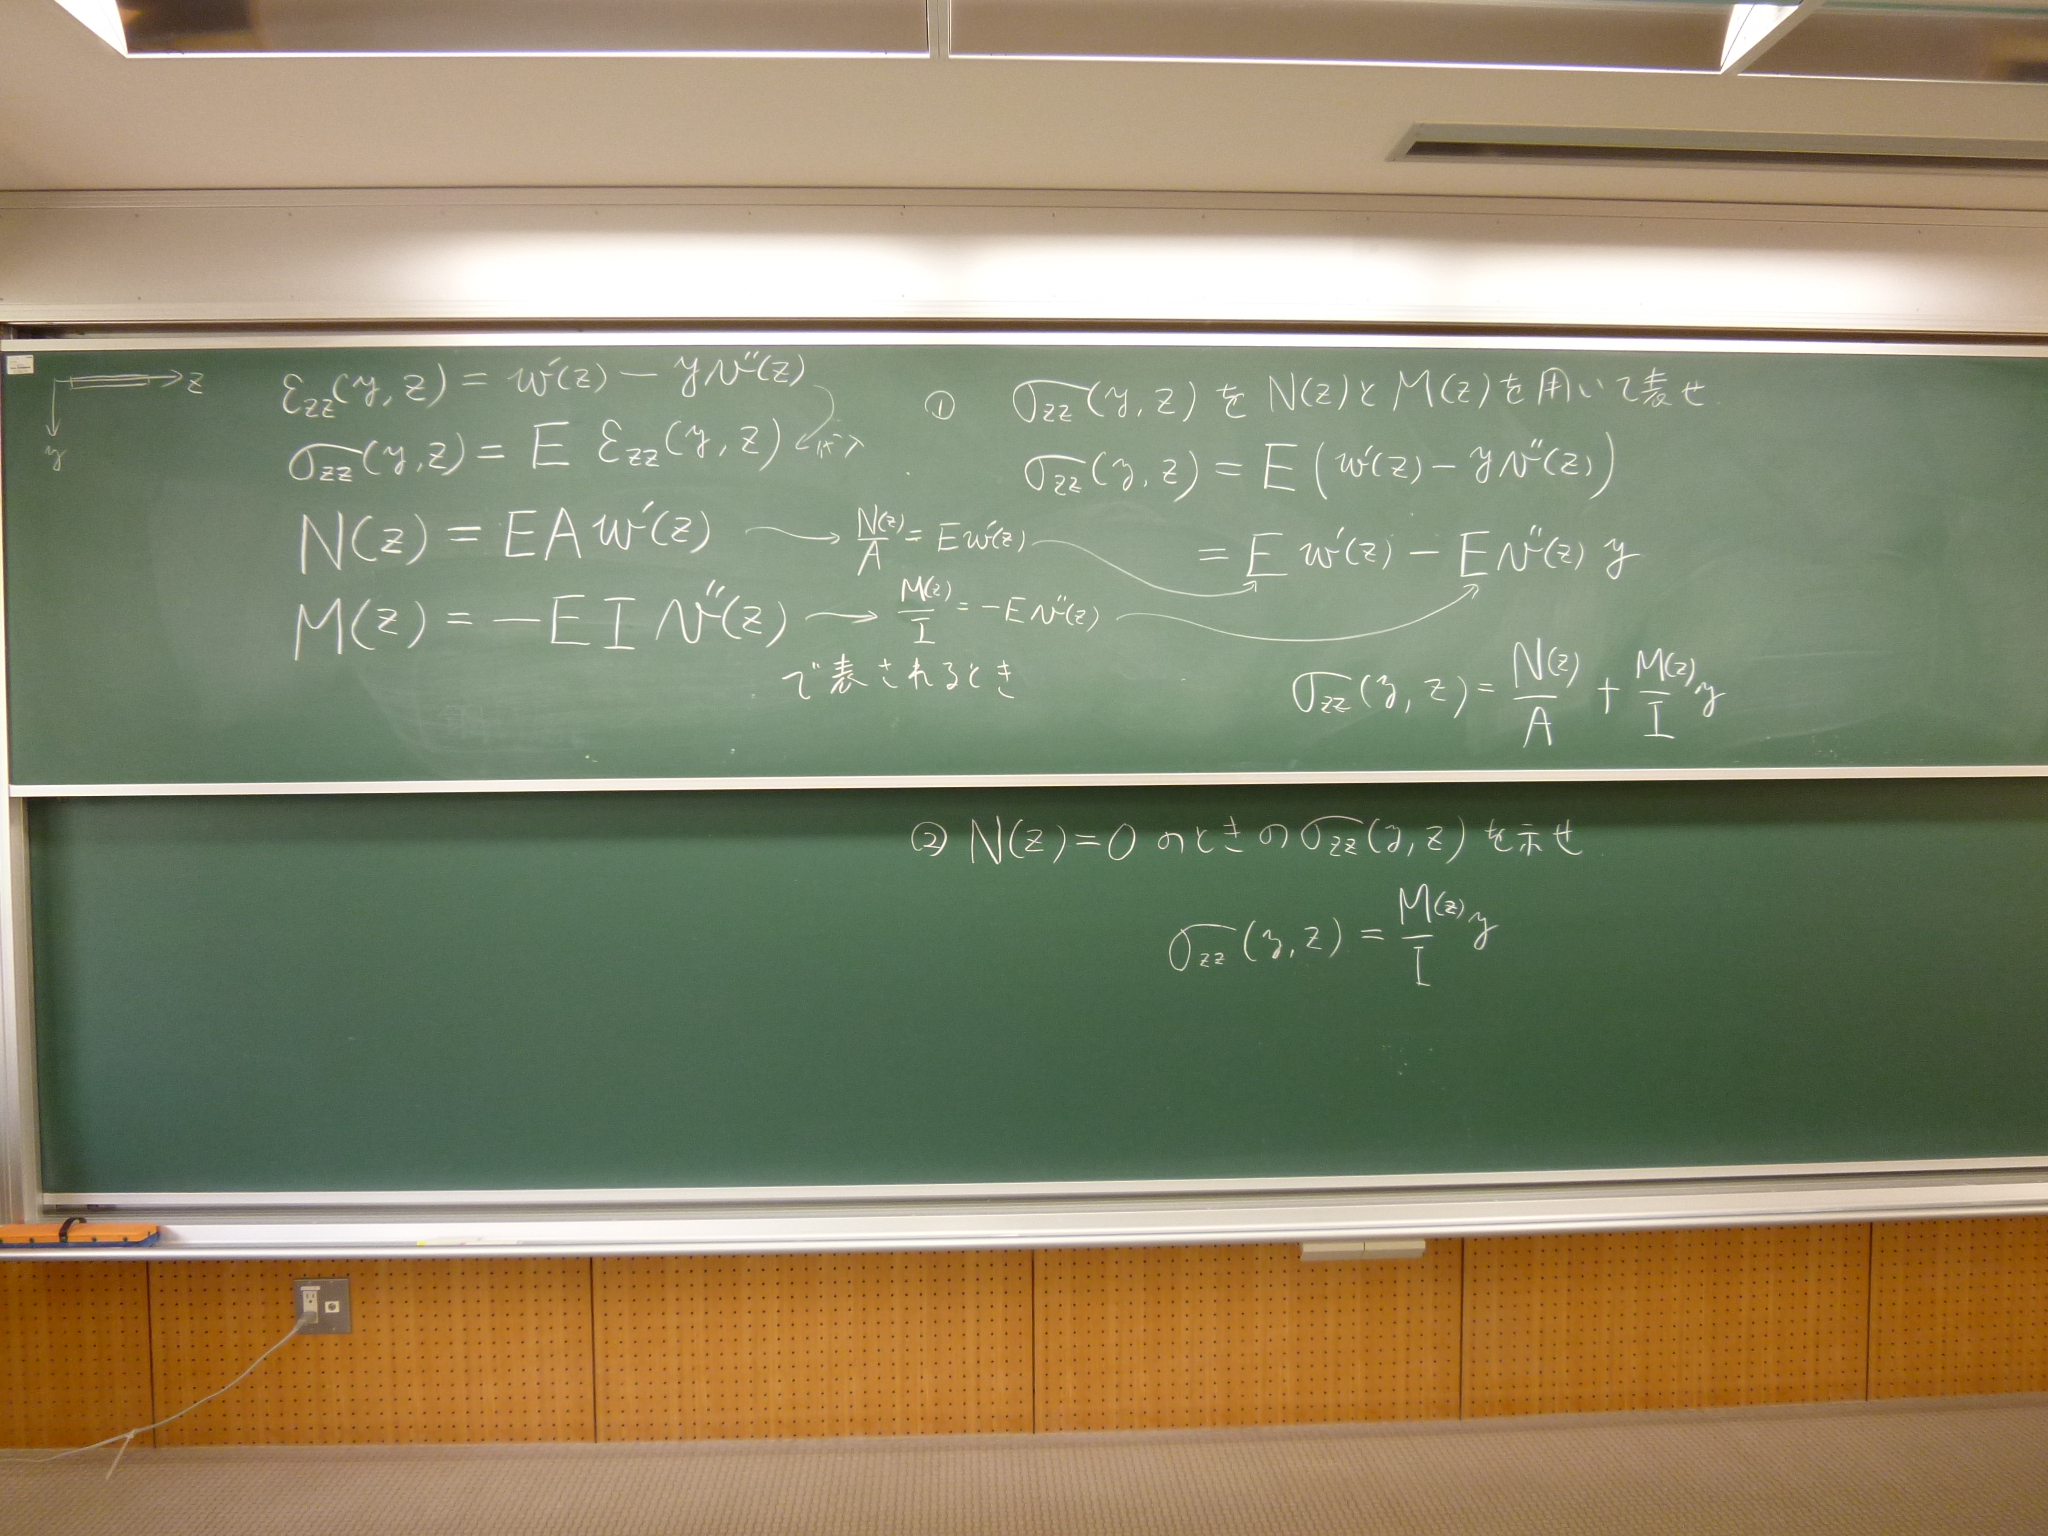 z
y
εzz(y, z) = w'(z) − yv''(z)
σzz(y, z) = E εzz(y, z) 代入
N(z) = EAw'(z) → N(z)/A = Ew'(z)
M(z) = −EIv''(z) → M(z)/I = −Ev''(z)
で表されるとき
① σzz(y, z) を N(z)と M(z)を用いて表せ
σzz(y, z) = E(w'(z) − yv''(z))
= E w'(z) − Ev''(z) y
σzz(y, z) = N(z)/A + M(z)/I y
② N(z)=0 のときの σzz(y, z) を示せ
σzz(y, z) = M(z)/I y